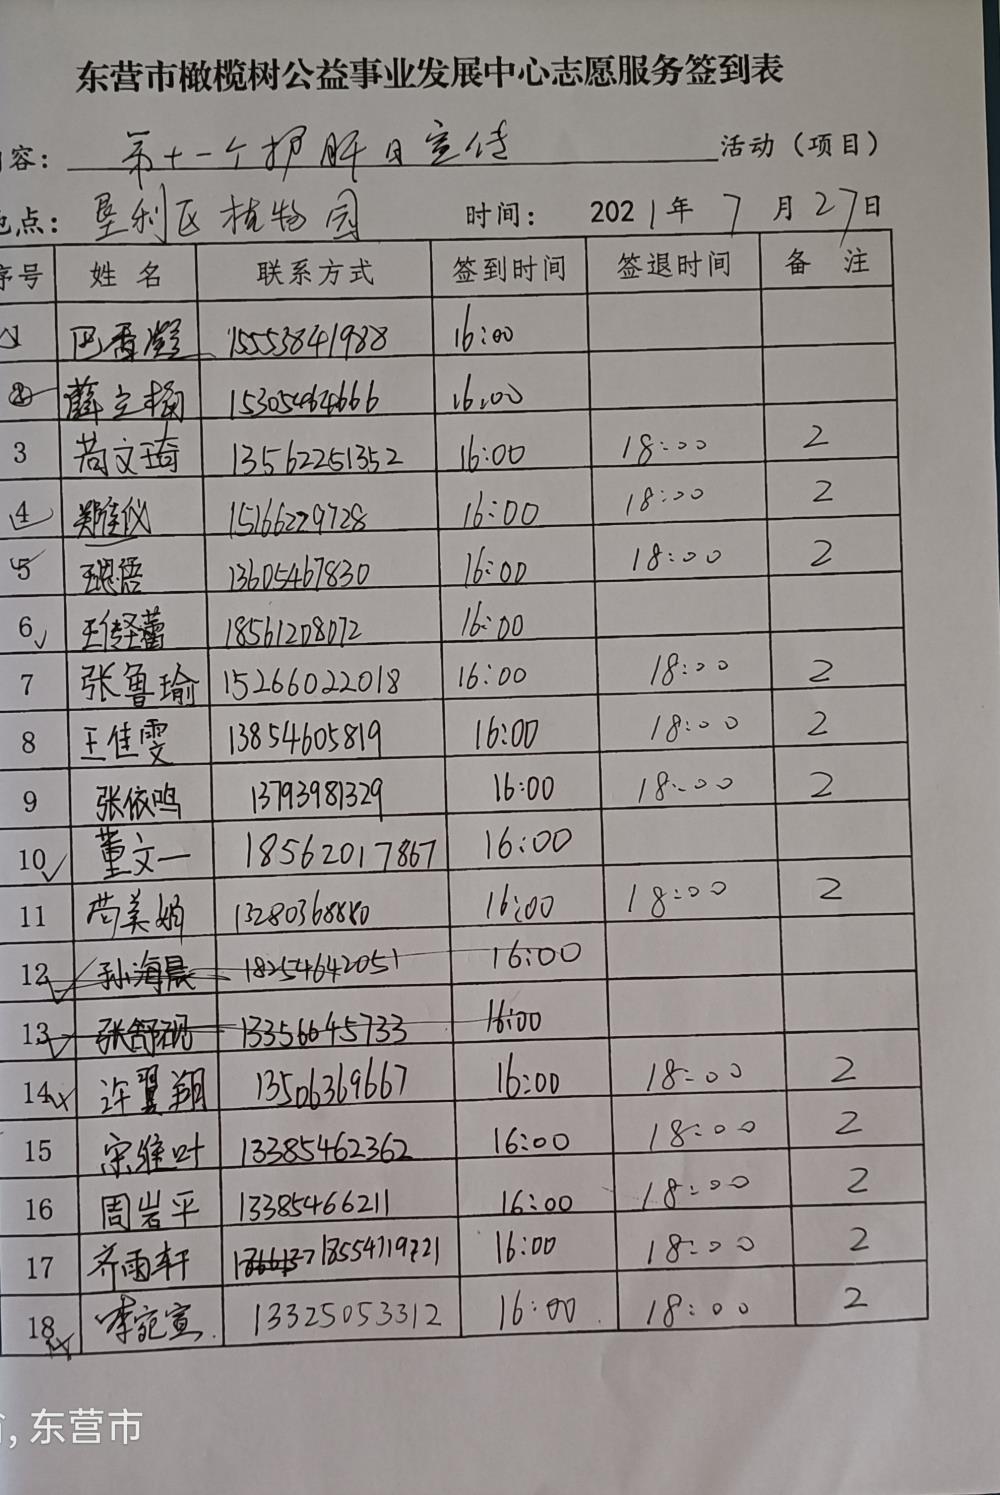 东营市橄榄树公益事业发展中心志愿服务签到表
容： 第十一个护肝日宣传 活动（项目）
点： 垦利区植物园 时间： 2021年7月27日
序号 姓名 联系方式 签到时间 签退时间 备 注
1 巴香凝 15553841988 16:00
2 薛立楠 15305464666 16:00
3 苟文琦 13562251352 16:00 18:00 2
4 郑佳仪 15166229728 16:00 18:00 2
5 13605467830 16:00 18:00 2
6 18561208072 16:00
7 张鲁瑜 15266022018 16:00 18:00 2
8 王佳雯 13854605819 16:00 18:00 2
9 张依鸣 13793981329 16:00 18:00 2
10 董文一 18562017867 16:00
11 苟美娟 13280368880 16:00 18:00 2
12 孙海晨 18254642051 16:00
13 张舒砚 13356645733 16:00
14 许翼翔 13506369667 16:00 18:00 2
15 宋维叶 13385462362 16:00 18:00 2
16 周岩平 13385466211 16:00 18:00 2
17 齐雨轩 18554719721 16:00 18:00 2
18 李宛宣 13325053312 16:00 18:00 2
, 东营市